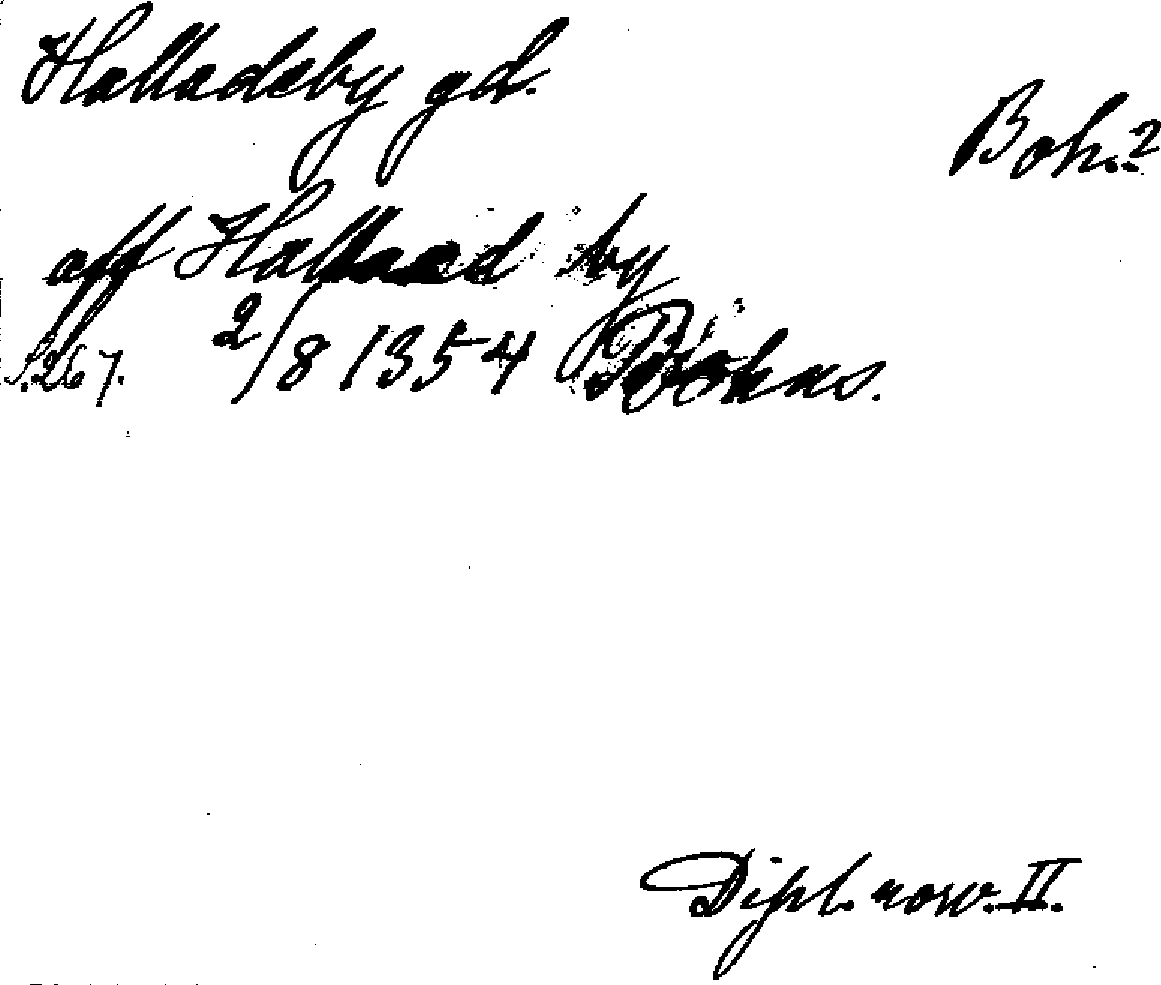 Halladeby gd.
Boh.?
aff Hallaed by
S. 267. 2/8 1354 Bohus.
Dipl. norv. II.